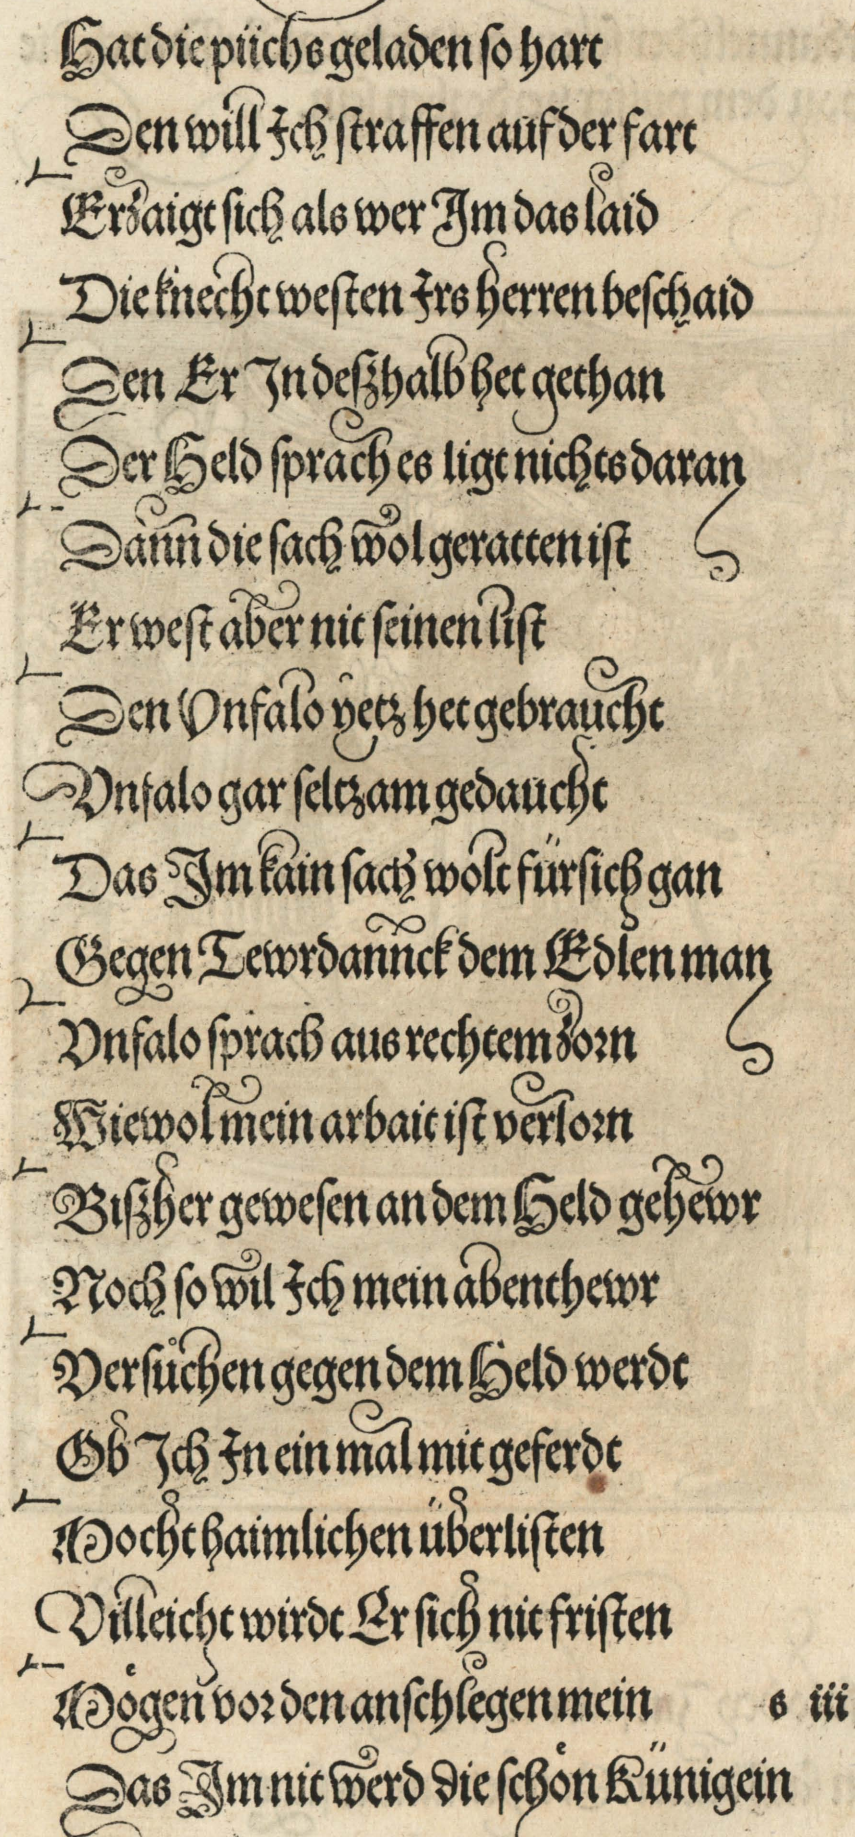 Hat die püchs geladen so hart
Den will Ich straffen auf der fart
Erzaigt sich als wer Im das laid
Die knecht westen Irs herren beschaid
Den Er In deßhalb het gethan
Der Held sprach es ligt nichts daran
Dann die sach wol geratten ist
Er west aber nit seinen list
Den Vnfalo yetz het gebraucht
Vnfalo gar seltzam gedaucht
Das Im kain sach wolt für sich gan
Gegen Tewrdannck dem Edlen man
Vnfalo sprach aus rechtem zorn
Wiewol mein arbait ist verlorn
Bißher gewesen an dem Held gehewr
Noch so wil Ich mein abenthewr
Versůchen gegen dem Held werdt
Ob Ich In ein mal mit geferdt
Mocht haimlichen überlisten
Villeicht wirdt Er sich nit fristen
Mögen vor den anschlegen mein s iii
Das Im nit werd die schön Künigein